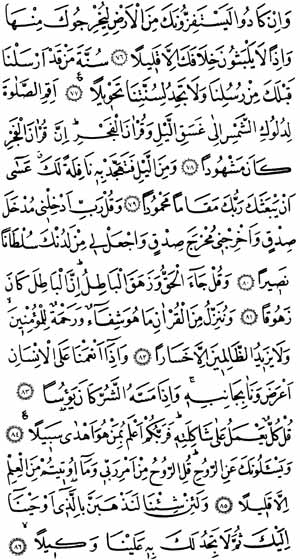 وَاِنْ كَادُوا لَيَسْتَفِزُّونَكَ مِنَ الْاَرْضِ لِيُخْرِجُوكَ مِنْهَا
وَاِذًا لَا يَلْبَثُونَ خِلَافَكَ اِلَّا قَلِيلًا ﴿٧٦﴾ سُنَّةَ مَنْ قَدْ اَرْسَلْنَا
قَبْلَكَ مِنْ رُسُلِنَا وَلَا تَجِدُ لِسُنَّتِنَا تَحْوِيلًا ﴿٧٧﴾ اَقِمِ الصَّلٰوةَ
لِدُلُوكِ الشَّمْسِ اِلٰى غَسَقِ الَّيْلِ وَقُرْاٰنَ الْفَجْرِ اِنَّ قُرْاٰنَ الْفَجْرِ
كَانَ مَشْهُودًا ﴿٧٨﴾ وَمِنَ الَّيْلِ فَتَهَجَّدْ بِهِ نَافِلَةً لَكَ عَسٰى
اَنْ يَبْعَثَكَ رَبُّكَ مَقَامًا مَحْمُودًا ﴿٧٩﴾ وَقُلْ رَبِّ اَدْخِلْنِى مُدْخَلَ
صِدْقٍ وَاَخْرِجْنِى مُخْرَجَ صِدْقٍ وَاجْعَلْ لِى مِنْ لَدُنْكَ سُلْطَانًا
نَصِيرًا ﴿٨٠﴾ وَقُلْ جَاءَ الْحَقُّ وَزَهَقَ الْبَاطِلُ اِنَّ الْبَاطِلَ كَانَ
زَهُوقًا ﴿٨١﴾ وَنُنَزِّلُ مِنَ الْقُرْاٰنِ مَا هُوَ شِفَاءٌ وَرَحْمَةٌ لِلْمُؤْمِنِينَ
وَلَا يَزِيدُ الظَّالِمِينَ اِلَّا خَسَارًا ﴿٨٢﴾ وَاِذَا اَنْعَمْنَا عَلَى الْاِنْسَانِ
اَعْرَضَ وَنَاٰ بِجَانِبِهِ وَاِذَا مَسَّهُ الشَّرُّ كَانَ يَؤُسًا ﴿٨٣﴾
قُلْ كُلٌّ يَعْمَلُ عَلٰى شَاكِلَتِهِ فَرَبُّكُمْ اَعْلَمُ بِمَنْ هُوَ اَهْدٰى سَبِيلًا ﴿٨٤﴾
وَيَسْـَٔلُونَكَ عَنِ الرُّوحِ قُلِ الرُّوحُ مِنْ اَمْرِ رَبِّى وَمَا اُوتِيتُمْ مِنَ الْعِلْمِ
اِلَّا قَلِيلًا ﴿٨٥﴾ وَلَئِنْ شِئْنَا لَنَذْهَبَنَّ بِالَّذِى اَوْحَيْنَا
اِلَيْكَ ثُمَّ لَا تَجِدُ لَكَ بِهِ عَلَيْنَا وَكِيلًا ﴿٨٦﴾